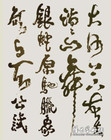 大河上下頓失
滔滔山舞
銀蛇原馳臘象
欲与天公試